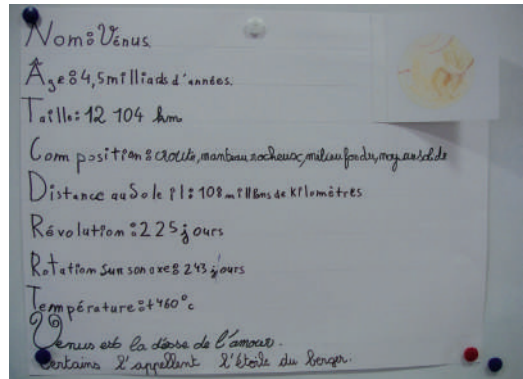 Nom : Vénus
Âge : 4,5 milliads d'années.
Taille : 12 104 km
Composition : croute, manteau rocheux, milieu fondu, noyau solide
Distance au Soleil : 108 millions de kilomètres
Révolution : 225 jours
Rotation sur son axe : 243 jours
Température : +460°c
Venus est la désse de l'amour.
Certains l'appellent l'étoile du berger.